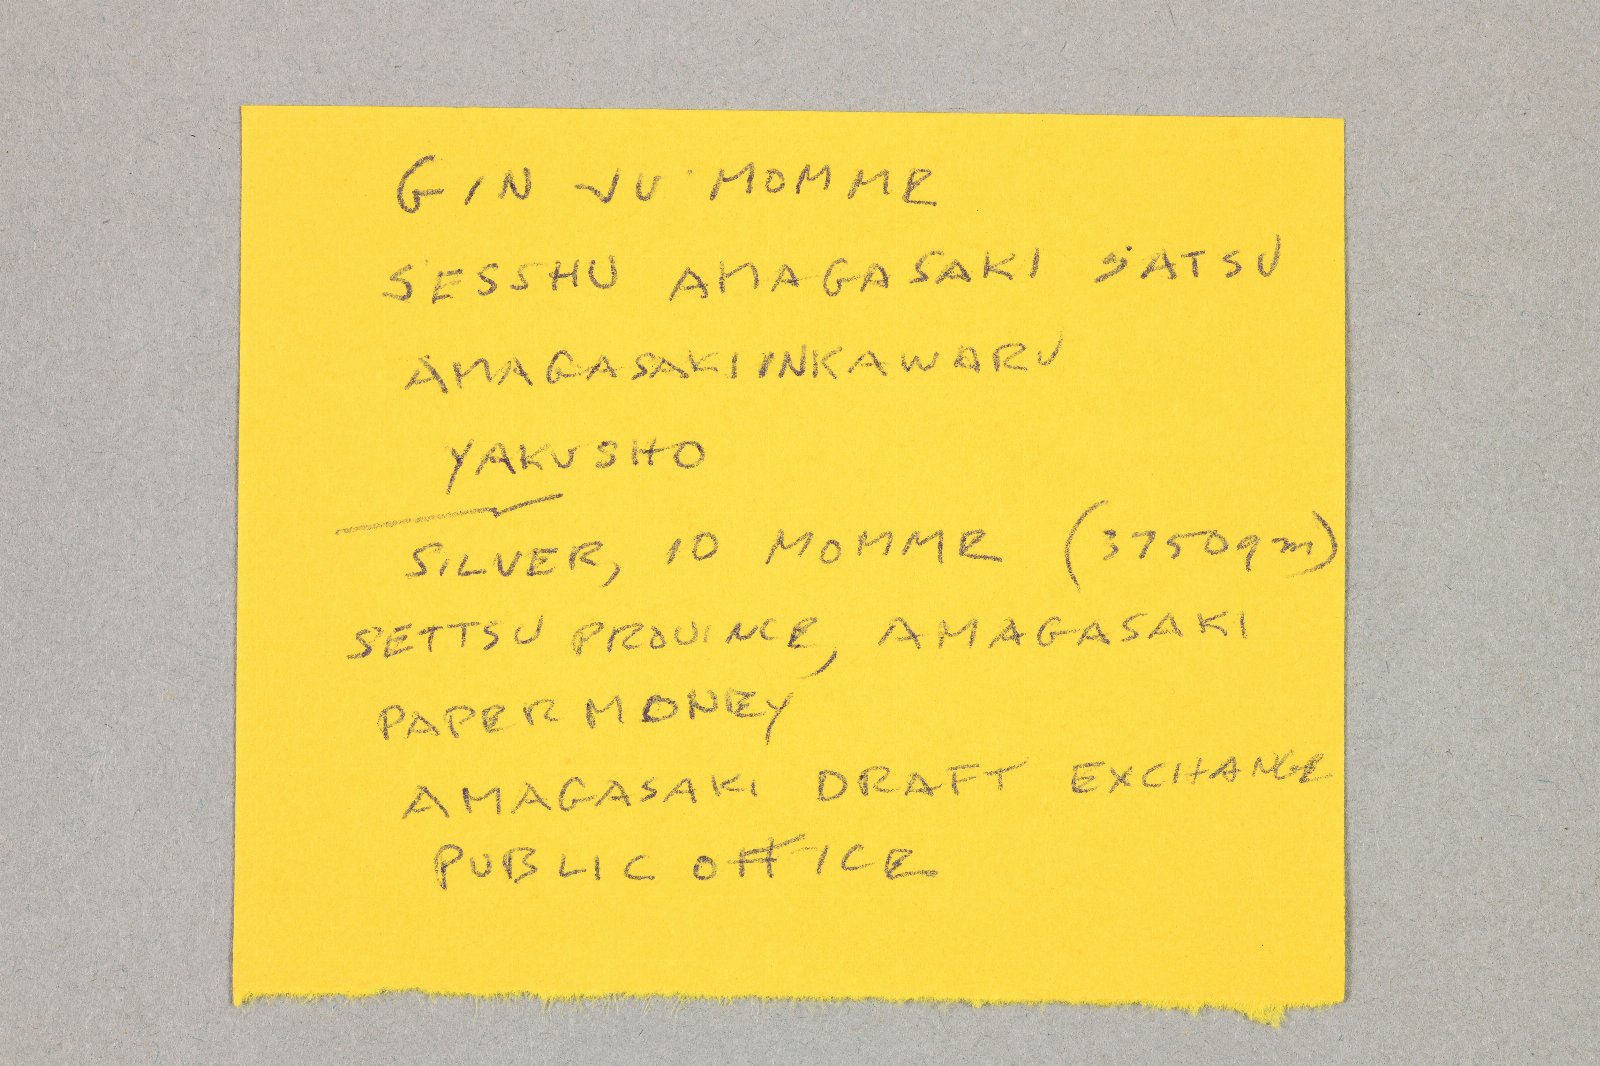 GIN JU MOMME
SESSHU AMAGASAKI SATSU
AMAGASAKI INKAWARU
YAKUSHO
SILVER, 10 MOMME (3750gm)
SETTSU PROVINCE, AMAGASAKI
PAPER MONEY
AMAGASAKI DRAFT EXCHANGE
PUBLIC OFFICE